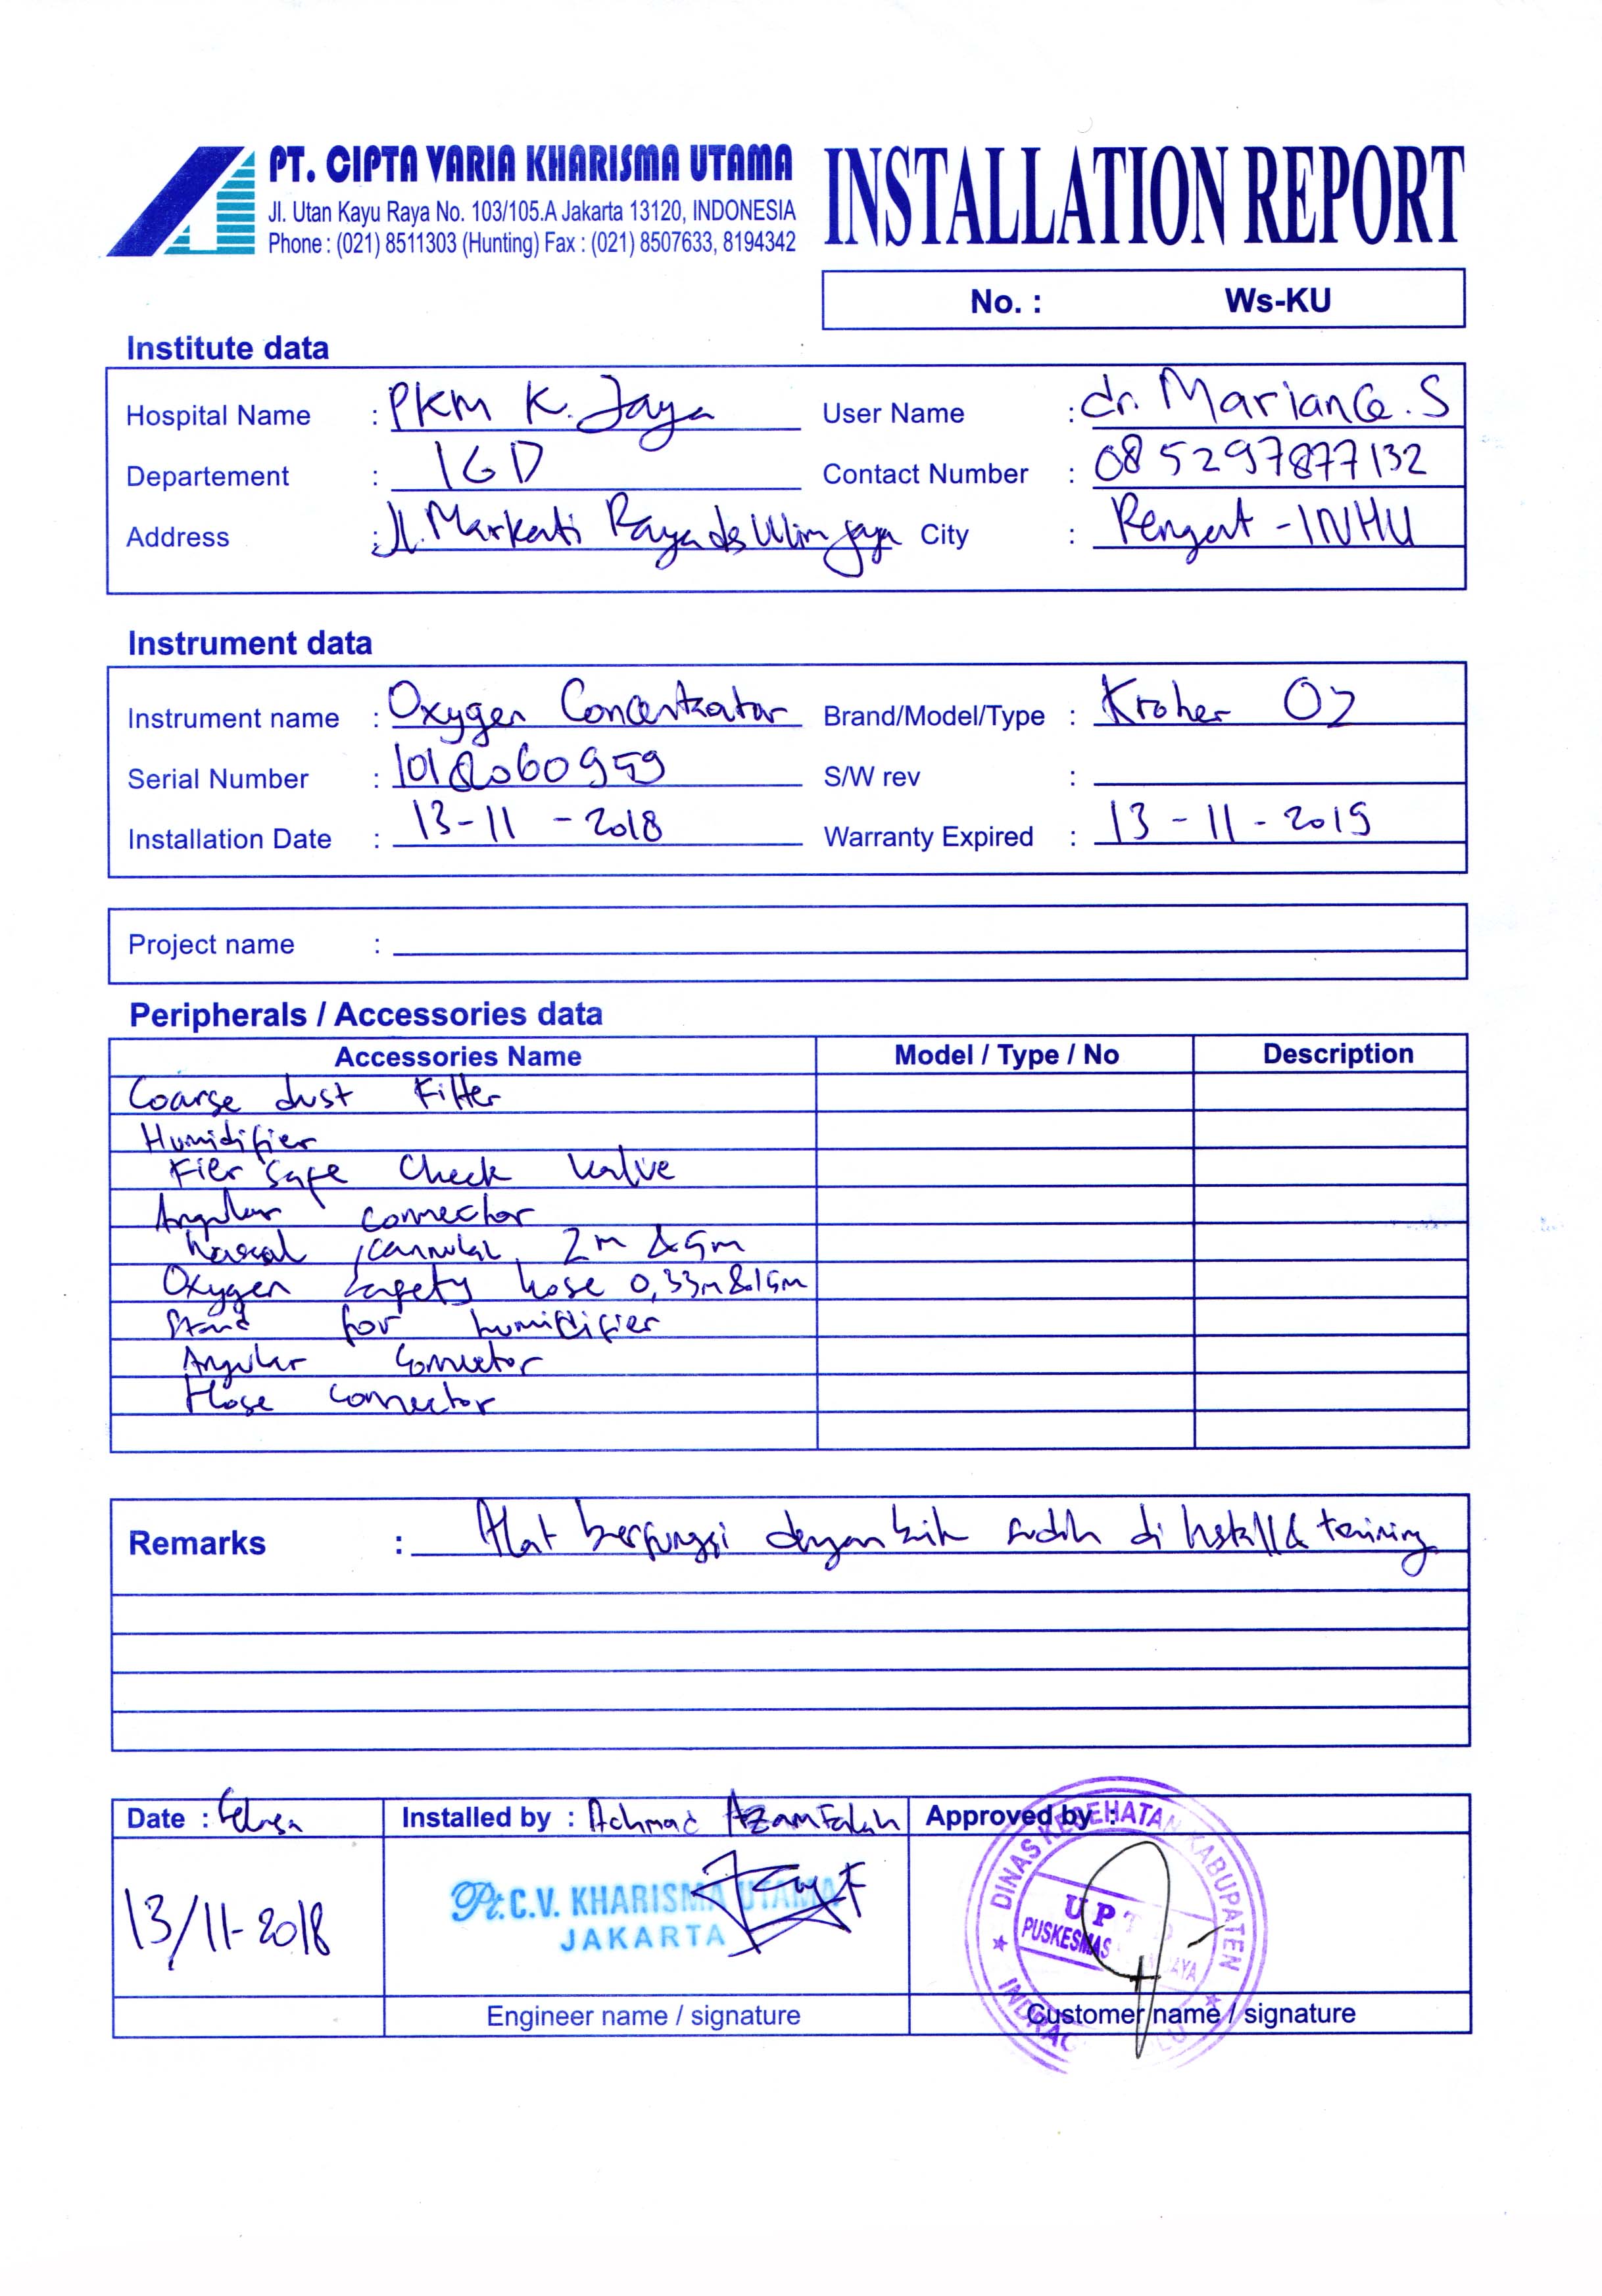 PT. CIPTA VARIA KHARISMA UTAMA
Jl. Utan Kayu Raya No. 103/105.A Jakarta 13120, INDONESIA
Phone : (021) 8511303 (Hunting) Fax : (021) 8507633, 8194342
INSTALLATION REPORT
No. : Ws-KU
Institute data
Hospital Name : PKM K. Jaya User Name : dr. Mariance. S
Departement : IGD Contact Number : 085297877132
Address : Jl. Markati Raya ds jaya City : Rengat - INHU
Instrument data
Instrument name : Oxygen Concentrator Brand/Model/Type : Kroher O2
Serial Number : 1018060959 S/W rev :
Installation Date : 13-11-2018 Warranty Expired : 13-11-2019
Project name :
Peripherals / Accessories data
Accessories Name Model / Type / No Description
Coarse dust Filter
Humidifier
Fier safe Check Valve
Angular connector
Nasal cannular 2m & 5m
Oxygen safety hose 0,33m &
Stand for humidifier
Angular Connector
Hose connector
Remarks : Alat berfungsi dengan baik sudah di install & training
Date : Selasa Installed by : Achmad Azam Falah Approved by :
13/11-2018
Pt. C.V. KHARISMA UTAMA
JAKARTA
DINAS KESEHATAN KABUPATEN
UPT
PUSKESMAS
Engineer name / signature Customer name / signature